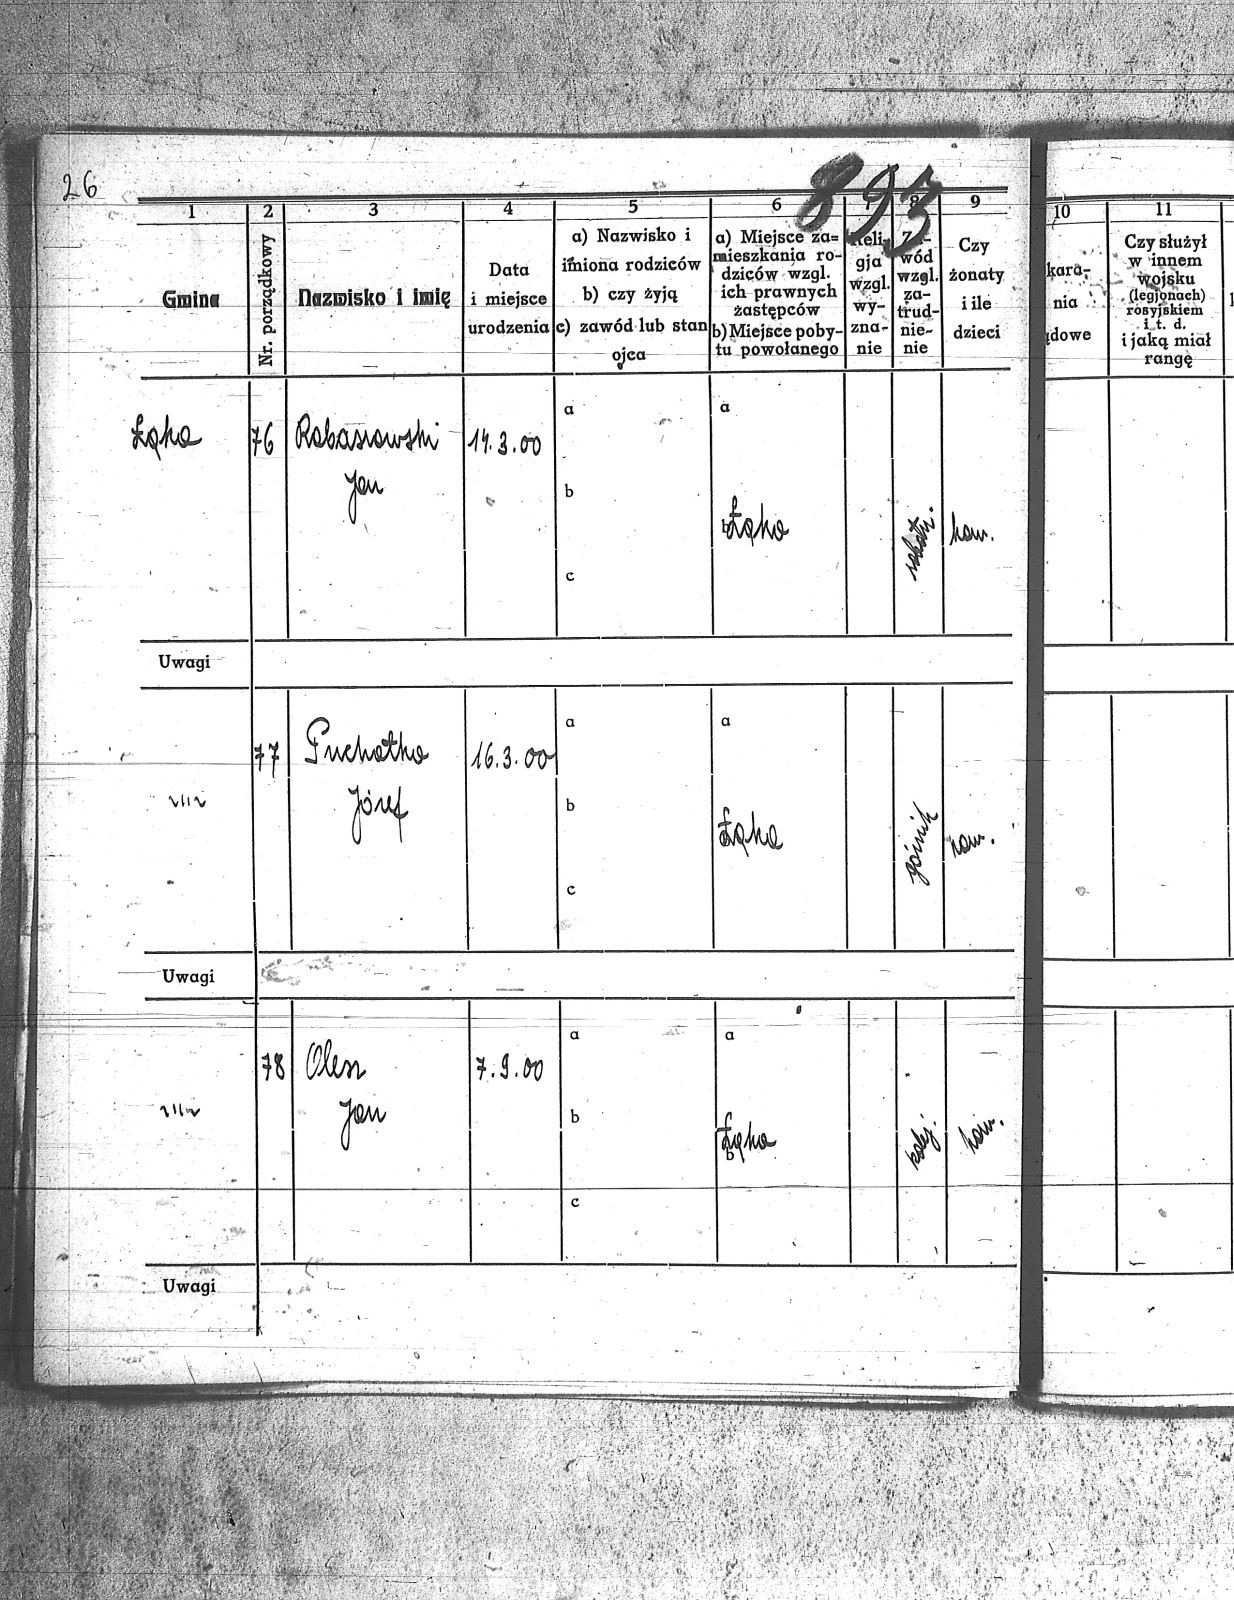 26
893
1 2 3 4 5 6 7 8 9 10 11
Gmina
Nr. porządkowy
Nazwisko i imię
Data
i miejsce
urodzenia
a) Nazwisko i
imiona rodziców
b) czy żyją
c) zawód lub stan
ojca
a) Miejsce za=
mieszkania ro-
dziców wzgl.
ich prawnych
zastępców
b) Miejsce poby-
tu powołanego
Reli-
gja
wzgl.
wy-
zna-
nie
wód
wzgl.
za-
trud-
nie-
nie
Czy
żonaty
i ile
dzieci
kara-
nia
ądowe
Czy służył
w innem
wojsku
(legjonach)
rosyjskiem
i t. d.
i jaką miał
rangę
Łąka 76 14.3.00
Jan
a a
b b Łąka kaw.
c
Uwagi
77 Puchałka 16.3.00
Józef
a a
b Łąka górnik kaw.
c
Uwagi
78 Olesz 7.9.00
Jan
a a
b b Łąka kolej. kaw.
c
Uwagi